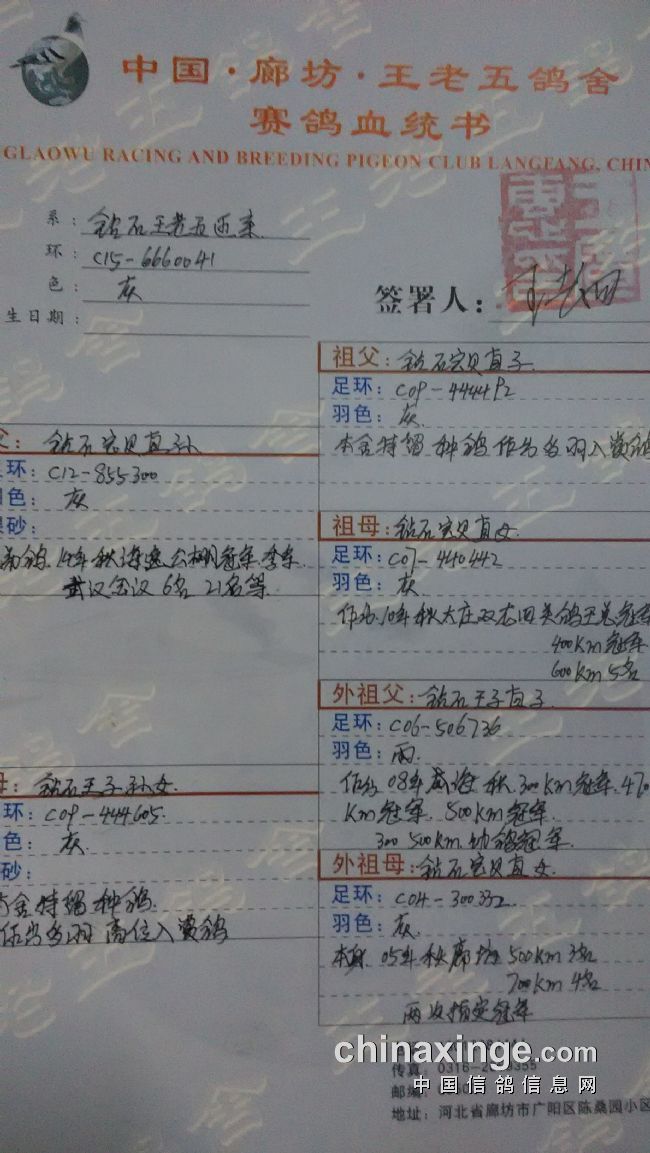 中国·廊坊·王老五鸽舍
赛鸽血统书
GLAOWU RACING AND BREEDING PIGEON CLUB LANGFANG, CHIN
系：钻石王老五近亲
环：C15-6660041
色：灰
生日期：
签署人：
祖父：钻石宝贝直子
足环：C09-444492
羽色：灰
本舍特留种鸽 作出多羽入赏鸽
父：钻石宝贝直孙
环：C12-855300
色：灰
砂：
武汉会议6名 21名等
祖母：钻石宝贝直女
足环：C07-440442
羽色：灰
作出10年秋大庄双龙四关鸽王总冠军
400Km冠军
600Km5名
外祖父：钻石王子直子
足环：C06-506736
羽色：雨
作出08年威海秋300Km冠军.470
Km冠军.500Km冠军
300 500Km幼鸽冠军
母：钻石王子孙女
环：C09-444605
色：灰
砂：
本舍特留种鸽
作出多羽高位入赏鸽
外祖母：钻石宝贝直女
足环：C04-300332
羽色：灰
本身05年秋廊坊500Km3名
700Km4名
两次指定冠军
chinaxinge.com
传真：0316-2
355
中国信鸽信息网
邮编：
地址：河北省廊坊市广阳区陈桑园小区